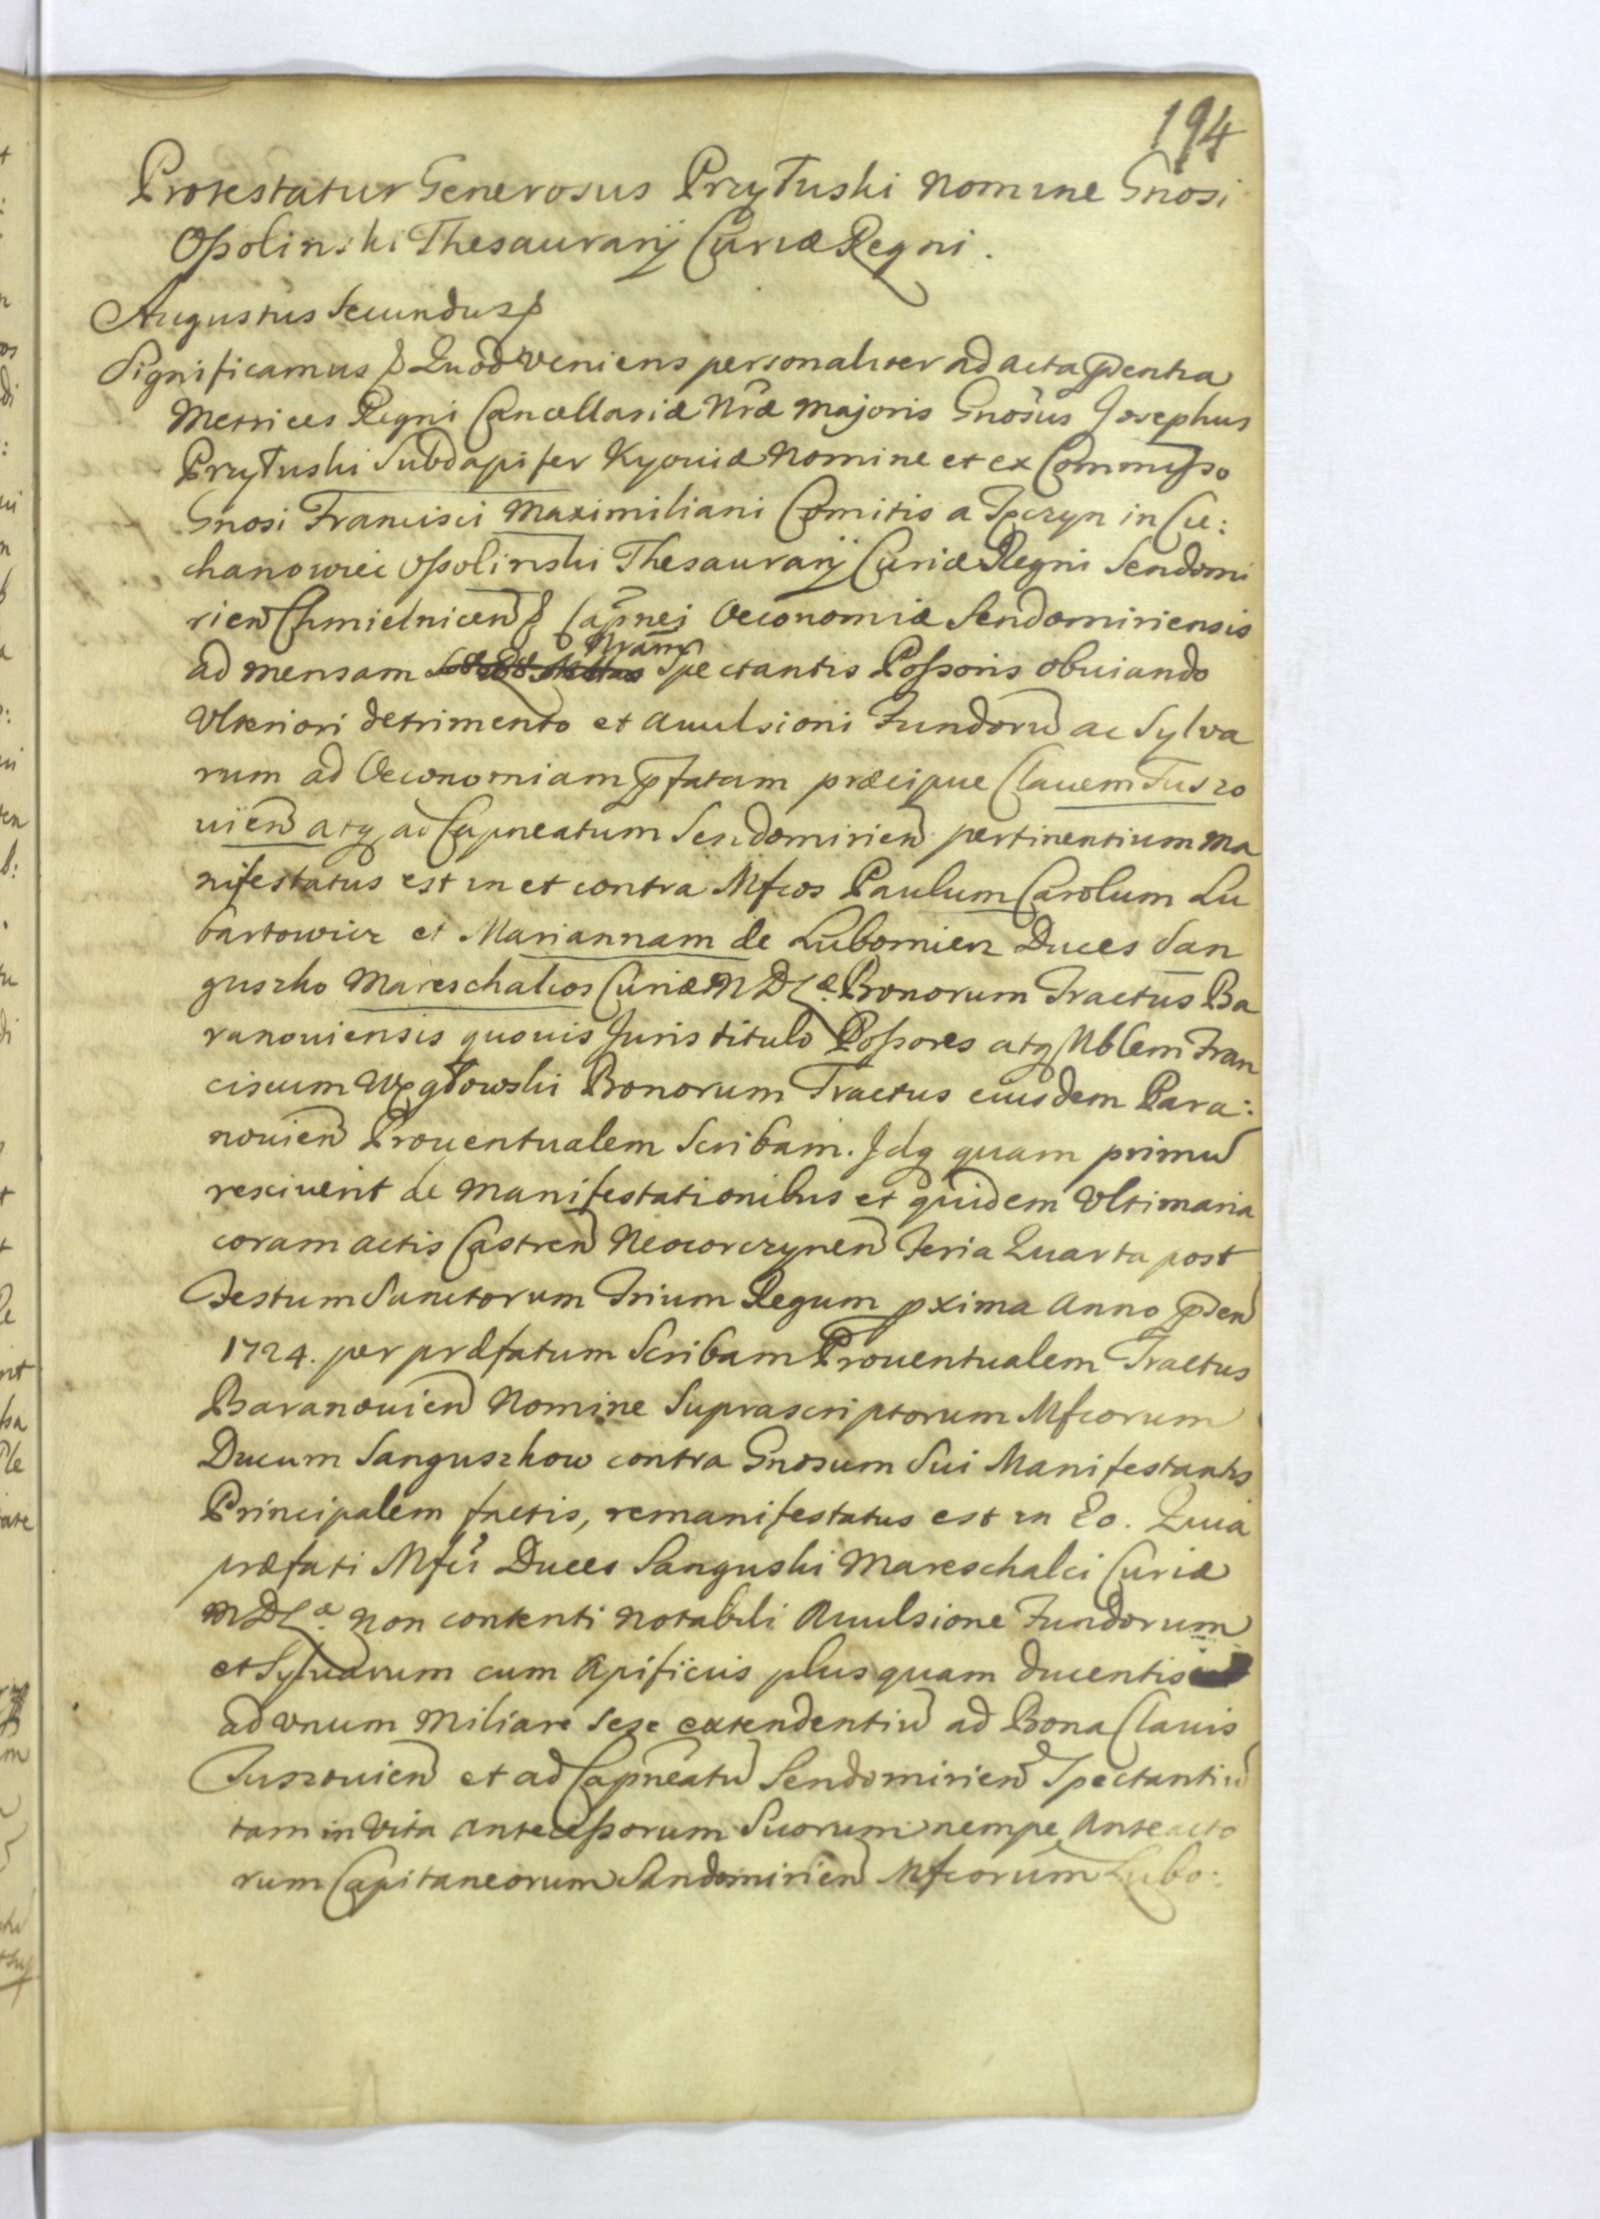 194
Protestatur Generosus Przyłuski nomine Gnosi
Ossolinski Thesaurarij Curiæ Regni.
Augustus Secundus
Significamus Quod veniens personaliter ad acta pntia
Metrices Regni Cancellariæ Nræ majoris Gnosus Josephus
Przyłuski Subdapifer Kyoviæ Nomine et ex Commisso
Gnosi Francisci Maximiliani Comitis a Tęczyn in Cie:
chanowiec Ossolinski Thesaurarij Curiæ Regni Sendomi
rien Chmielnicen Capnei Oeconomiæ Sendomiriensis
ad mensam Nram Spectantis Possoris obuiando
Vlteriori detrimento et auulsioni Fundoru ac Sylva
rum ad Oeconomiam pfatam præcipue Clauem Tuszo
uien atq ad Capneatum Sendomirien pertinentium Ma
nifestatus est in et contra Mfcos Paulum Carolum Lu
bartowicz et Mariannam de Lubomierz Duces San
guszko Mareschalcos Curiæ M D L æ. Bonorum Tractus Ba
ranouiensis quouis Juris titulo Possores atq Nblem Fran
ciscum Węgłowski Bonorum Tractus eiusdem Bara:
nouien Prouentualem Scribam. Idq quam primu
resciuerit de Manifestationibus et quidem Vltimaria
coram actis Castren Neocorczynen Feria Quarta post
Festum Sanctorum Trium Regum pxima Anno pnti
1724. per præfatum Scribam Prouentualem Tractus
Baranouien Nomine Suprascriptorum Mfcorum
Ducum Sanguszkow contra Gnosum Sui Manifestantis
Principalem factis, remanifestatus est in Eo. Quia
præfati Mfci Duces Sangushi Mareschalci Curiæ
M D L æ. non contenti notabili Auulsione Fundorum
et Sylvarum cum Apificiis plusquam ducentis
ad vnum Miliare Sese extendentiu ad Bona Clauis
Tuszouien et ad Capneatu Sendomirien Spectantiu
tam in Vita Antecessorum Suorum nempe Anteacto
rum Capitaneorum Sandomirien Mfcorum Lubo: